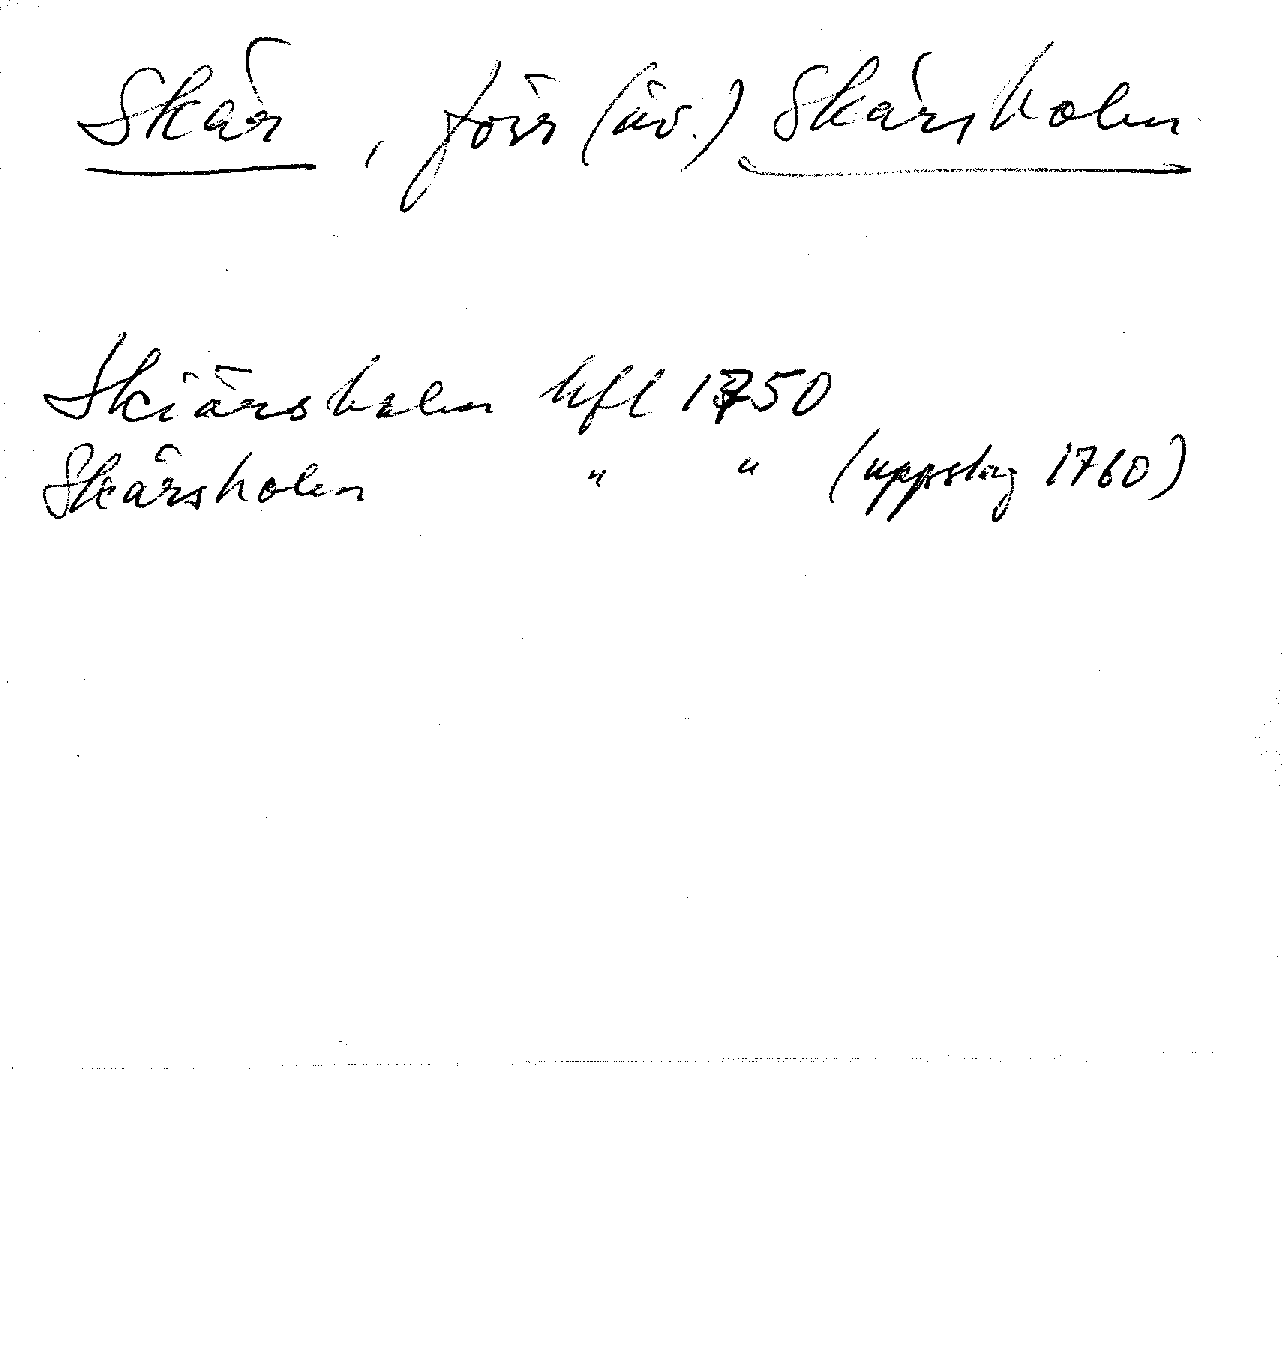 Skär, förr (äv.) Skärsholm
Skiärsholm hfl 1750
Skärsholm " " (uppslag 1760)